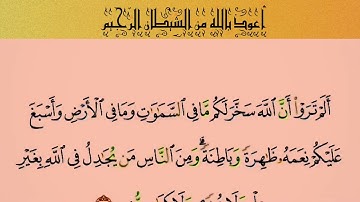 أعوذ بالله من الشيطان الرجيم
أَلَمْ تَرَوْا۟ أَنَّ ٱللَّهَ سَخَّرَ لَكُم مَّا فِى ٱلسَّمَـٰوَٰتِ وَمَا فِى ٱلْأَرْضِ وَأَسْبَغَ
عَلَيْكُمْ نِعَمَهُۥ ظَـٰهِرَةً وَبَاطِنَةً ۗ وَمِنَ ٱلنَّاسِ مَن يُجَـٰدِلُ فِى ٱللَّهِ بِغَيْرِ